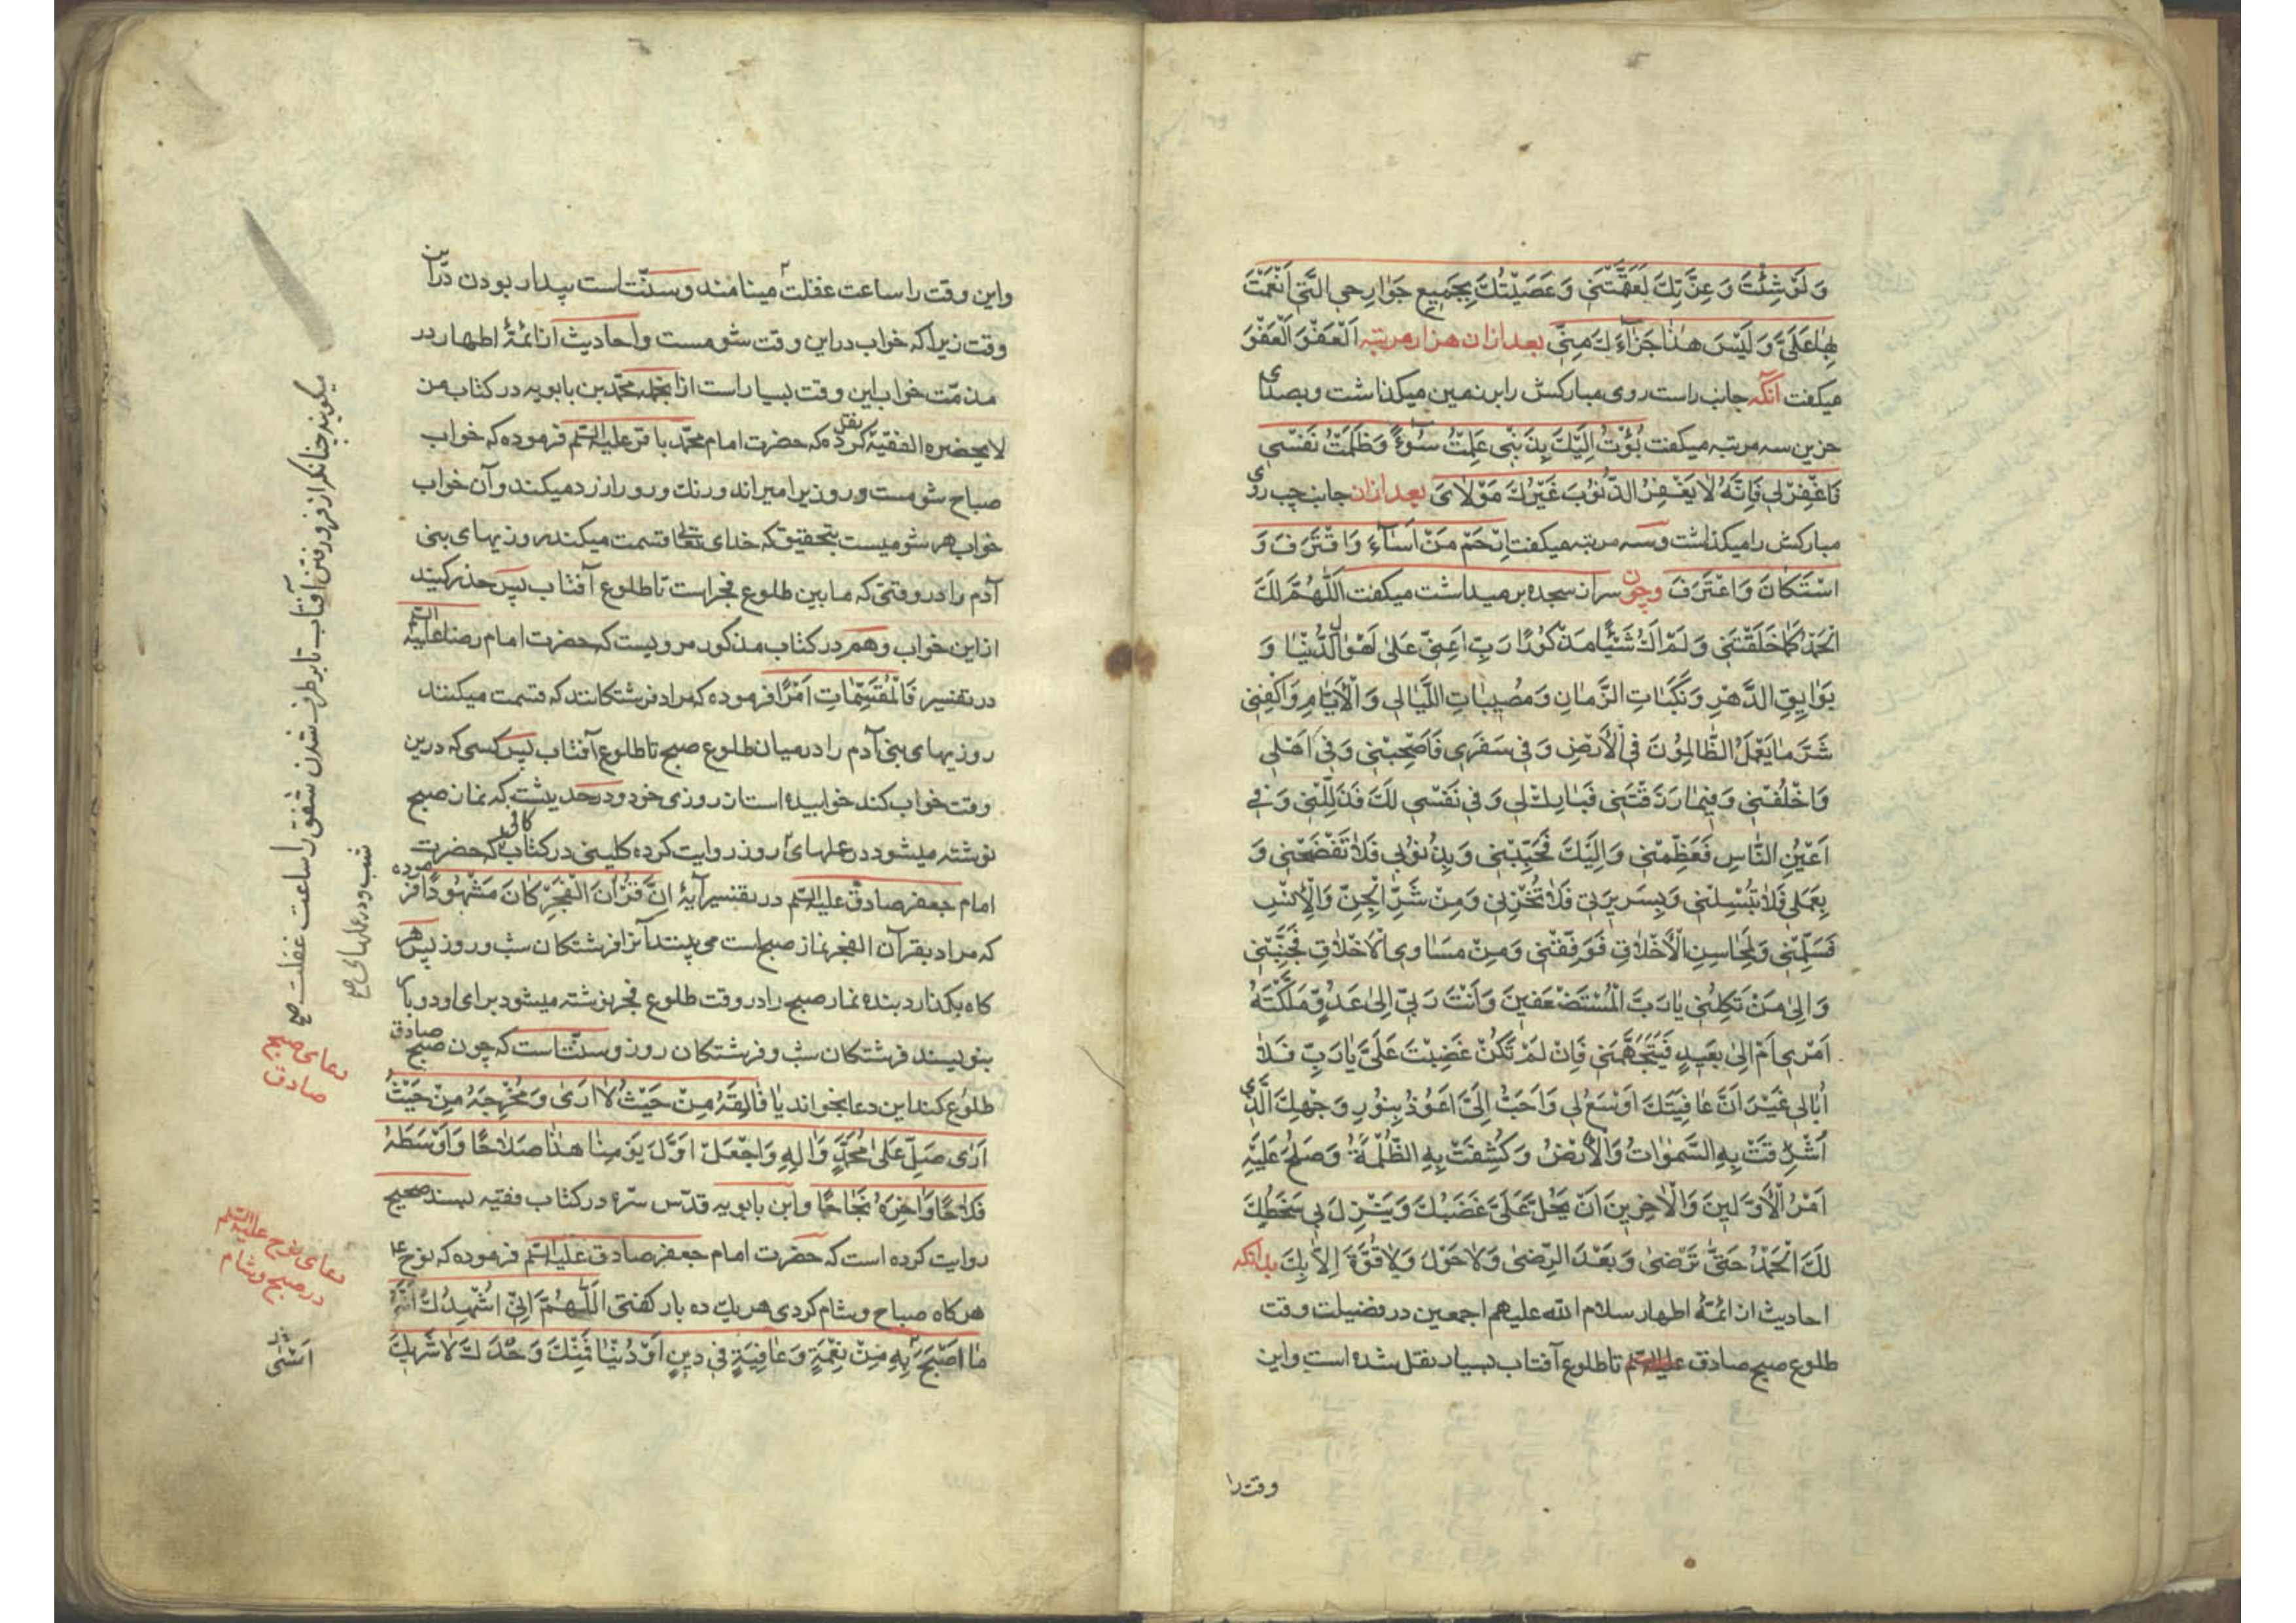 وَلَوْ شِئْتَ وَعِزَّتِكَ لَعَقَمْتَنِي وَعَصَيْتُكَ بِجَمِيعِ جَوَارِحِي الَّتِي اَنْعَمْتَ
بِهَا عَلَيَّ وَلَيْسَ هٰذَا جَزَاءَكَ مِنِّي بعد ازان هزار مرتبه اَلْعَفْوَ اَلْعَفْوَ
میکفت آنکه جانب راست روی مبارکش را بر زمین میکذاشت وبصدای
حزین سه مرتبه میکفت بُؤْتُ اِلَيْكَ بِذَنْبِي عَمِلْتُ سُوْءً وَظَلَمْتُ نَفْسِي
فَاغْفِرْ لِي فَاِنَّهُ لَا يَغْفِرُ الذُّنُوبَ غَيْرُكَ مَوْلَايَ بعد ازان جانب چپ روی
مبارکش را میکذاشت وسه مرتبه میکفت اِرْحَمْ مَنْ اَسَاءَ وَاقْتَرَفَ وَ
اسْتَكَانَ وَاعْتَرَفَ وچون سر از سجده بر میداشت میکفت اَللّٰهُمَّ لَكَ
الْحَمْدُ كَمَا خَلَقْتَنِي وَلَمْ اَكُ شَيْئًا مَذْكُورًا رَبِّ اَعِنِّي عَلٰى اَهْوَالِ الدُّنْيَا وَ
بَوَايِقِ الدَّهْرِ وَنَكَبَاتِ الزَّمَانِ وَمُصِيبَاتِ اللَّيَالِي وَالْاَيَّامِ وَاكْفِنِي
شَرَّ مَا يَعْمَلُ الظَّالِمُونَ فِي الْاَرْضِ وَفِي سَفَرِي فَاصْحِبْنِي وَفِي اَهْلِي
وَاخْلُفْنِي وَفِيمَا رَزَقْتَنِي فَبَارِكْ لِي وَفِي نَفْسِي لَكَ فَذَلِّلْنِي وَفِي
اَعْيُنِ النَّاسِ فَعَظِّمْنِي وَاِلَيْكَ فَحَبِّبْنِي وَبِذُنُوبِي فَلَا تَفْضَحْنِي وَ
بِعَمَلِي فَلَا تُبْسِلْنِي وَبِسَرِيرَتِي فَلَا تُخْزِنِي وَمِنْ شَرِّ الْجِنِّ وَالْاِنْسِ
فَسَلِّمْنِي وَلِمَحَاسِنِ الْاَخْلَاقِ فَوَفِّقْنِي وَمِنْ مَسَاوِي الْاَخْلَاقِ فَجَنِّبْنِي
وَاِلٰى مَنْ تَكِلُنِي يَا رَبَّ الْمُسْتَضْعَفِينَ وَاَنْتَ رَبِّي اِلٰى عَدُوٍّ مَلَّكْتَهُ
اَمْرِي اَمْ اِلٰى بَعِيدٍ فَيَتَجَهَّمَنِي فَاِنْ لَمْ تَكُنْ غَضِبْتَ عَلَيَّ يَا رَبِّ فَلَا
اُبَالِي غَيْرَ اَنَّ عَافِيَتَكَ اَوْسَعُ لِي وَاَحَبُّ اِلَيَّ اَعُوذُ بِنُورِ وَجْهِكَ الَّذِي
اَشْرَقَتْ بِهِ السَّمٰوَاتُ وَالْاَرْضُ وَكُشِفَتْ بِهِ الظُّلْمَةُ وَصَلَحَ عَلَيْهِ
اَمْرُ الْاَوَّلِينَ وَالْاٰخِرِينَ اَنْ يَحُلَّ عَلَيَّ غَضَبُكَ وَيَنْزِلَ بِي سَخَطُكَ
لَكَ الْحَمْدُ حَتّٰى تَرْضٰى وَبَعْدَ الرِّضٰى وَلَا حَوْلَ وَلَا قُوَّةَ اِلَّا بِكَ بدانکه
احادیث از ائمّهٔ اطهار سلام الله علیهم اجمعین در فضیلت وقت
طلوع صبح صادق تا طلوع آفتاب بسیار نقل شده است واین
وقت را
واین وقت را ساعت غفلت مینامند وسنّت است بیدار بودن دراین
وقت زیرا که خواب دراین وقت شومست واحادیث از ائمّهٔ اطهار در
مذمّت خواب این وقت بسیار است ازانجمله محمّد بن بابویه در کتاب من
لا یحضره الفقیه نقل کرده که حضرت امام محمّد باقر علیه السّلم فرموده که خواب
صباح شومست وروزی را میراند ورنك ورو را زرد میکند وآن خواب
خواب هر شومیست بتحقیق که خدای تعالی قسمت میکند روزیهای بنی
آدم را در وقتی که ما بین طلوع فجر است تا طلوع آفتاب پس حذر کنید
ازاین خواب وهم در کتاب مذکور مرویست که حضرت امام رضا علیه السّلم
در تفسیر فَالْمُقَسِّمَاتِ اَمْرًا فرموده که مراد فرشتکانند که قسمت میکنند
روزیهای بنی آدم را در میان طلوع صبح تا طلوع آفتاب پس کسی که درین
وقت خواب کند خوابیده است از روزی خود ودر حدیثست که نماز صبح
نوشته میشود در عملهای روز روایت کرده کلینی در کتاب کافی که حضرت
امام جعفر صادق علیه السّلم در تفسیر آیهٔ اِنَّ قُرْاٰنَ الْفَجْرِ كَانَ مَشْهُودًا فرموده
که مراد بقرآن الفجر نماز صبح است می بینند آنرا فرشتکان شب وروز پس هر
کاه بکذارد بنده نماز صبح را در وقت طلوع فجر نوشته میشود برای او دو بار
بنویسند فرشتکان شب وفرشتکان روز وسنّت است که چون صبح صادق
طلوع کند این دعا بخواند يَا فَالِقَهُ مِنْ حَيْثُ لَا اَرٰى وَمُخْرِجَهُ مِنْ حَيْثُ
اَرٰى صَلِّ عَلٰى مُحَمَّدٍ وَاٰلِهِ وَاجْعَلْ اَوَّلَ يَوْمِنَا هٰذَا صَلَاحًا وَاَوْسَطَهُ
فَلَاحًا وَاٰخِرَهُ نَجَاحًا وابن بابویه قدّس سرّه در کتاب فقیه بسند صحیح
روایت کرده است که حضرت امام جعفر صادق علیه السّلم فرموده که نوح ع
هر کاه صباح وشام کردی هر یك ده بار کفتی اَللّٰهُمَّ اِنِّي اُشْهِدُكَ اَنَّهُ
مَا اَصْبَحَ بِهِ مِنْ نِعْمَةٍ وَعَافِيَةٍ فِي دِينٍ اَوْ دُنْيَا فَمِنْكَ وَحْدَكَ لَا شَرِيكَ
میکویند چنانکه از فرو رفتن آفتاب تا بر طرف شدن شفق را ساعت غفلت
شب ودر عملهای
دعای صبح
صادق
دعای نوح علیه السّلم
در صبح وشام